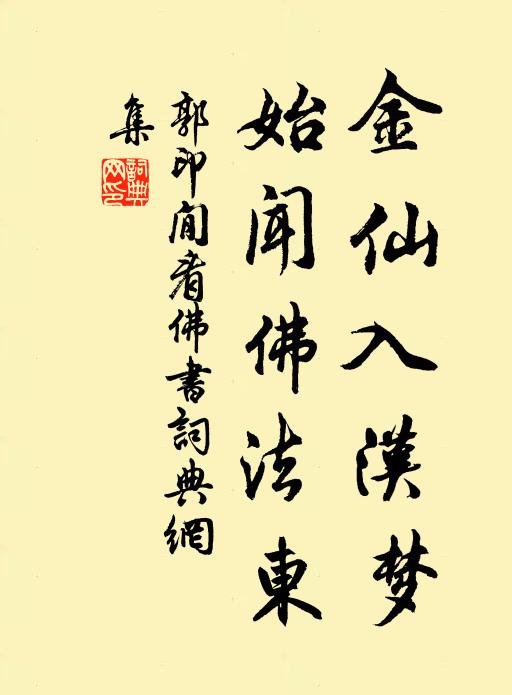 金仙入漢梦
始闻佛法東
郭印闻看佛書詞典網
集
詞典
网印